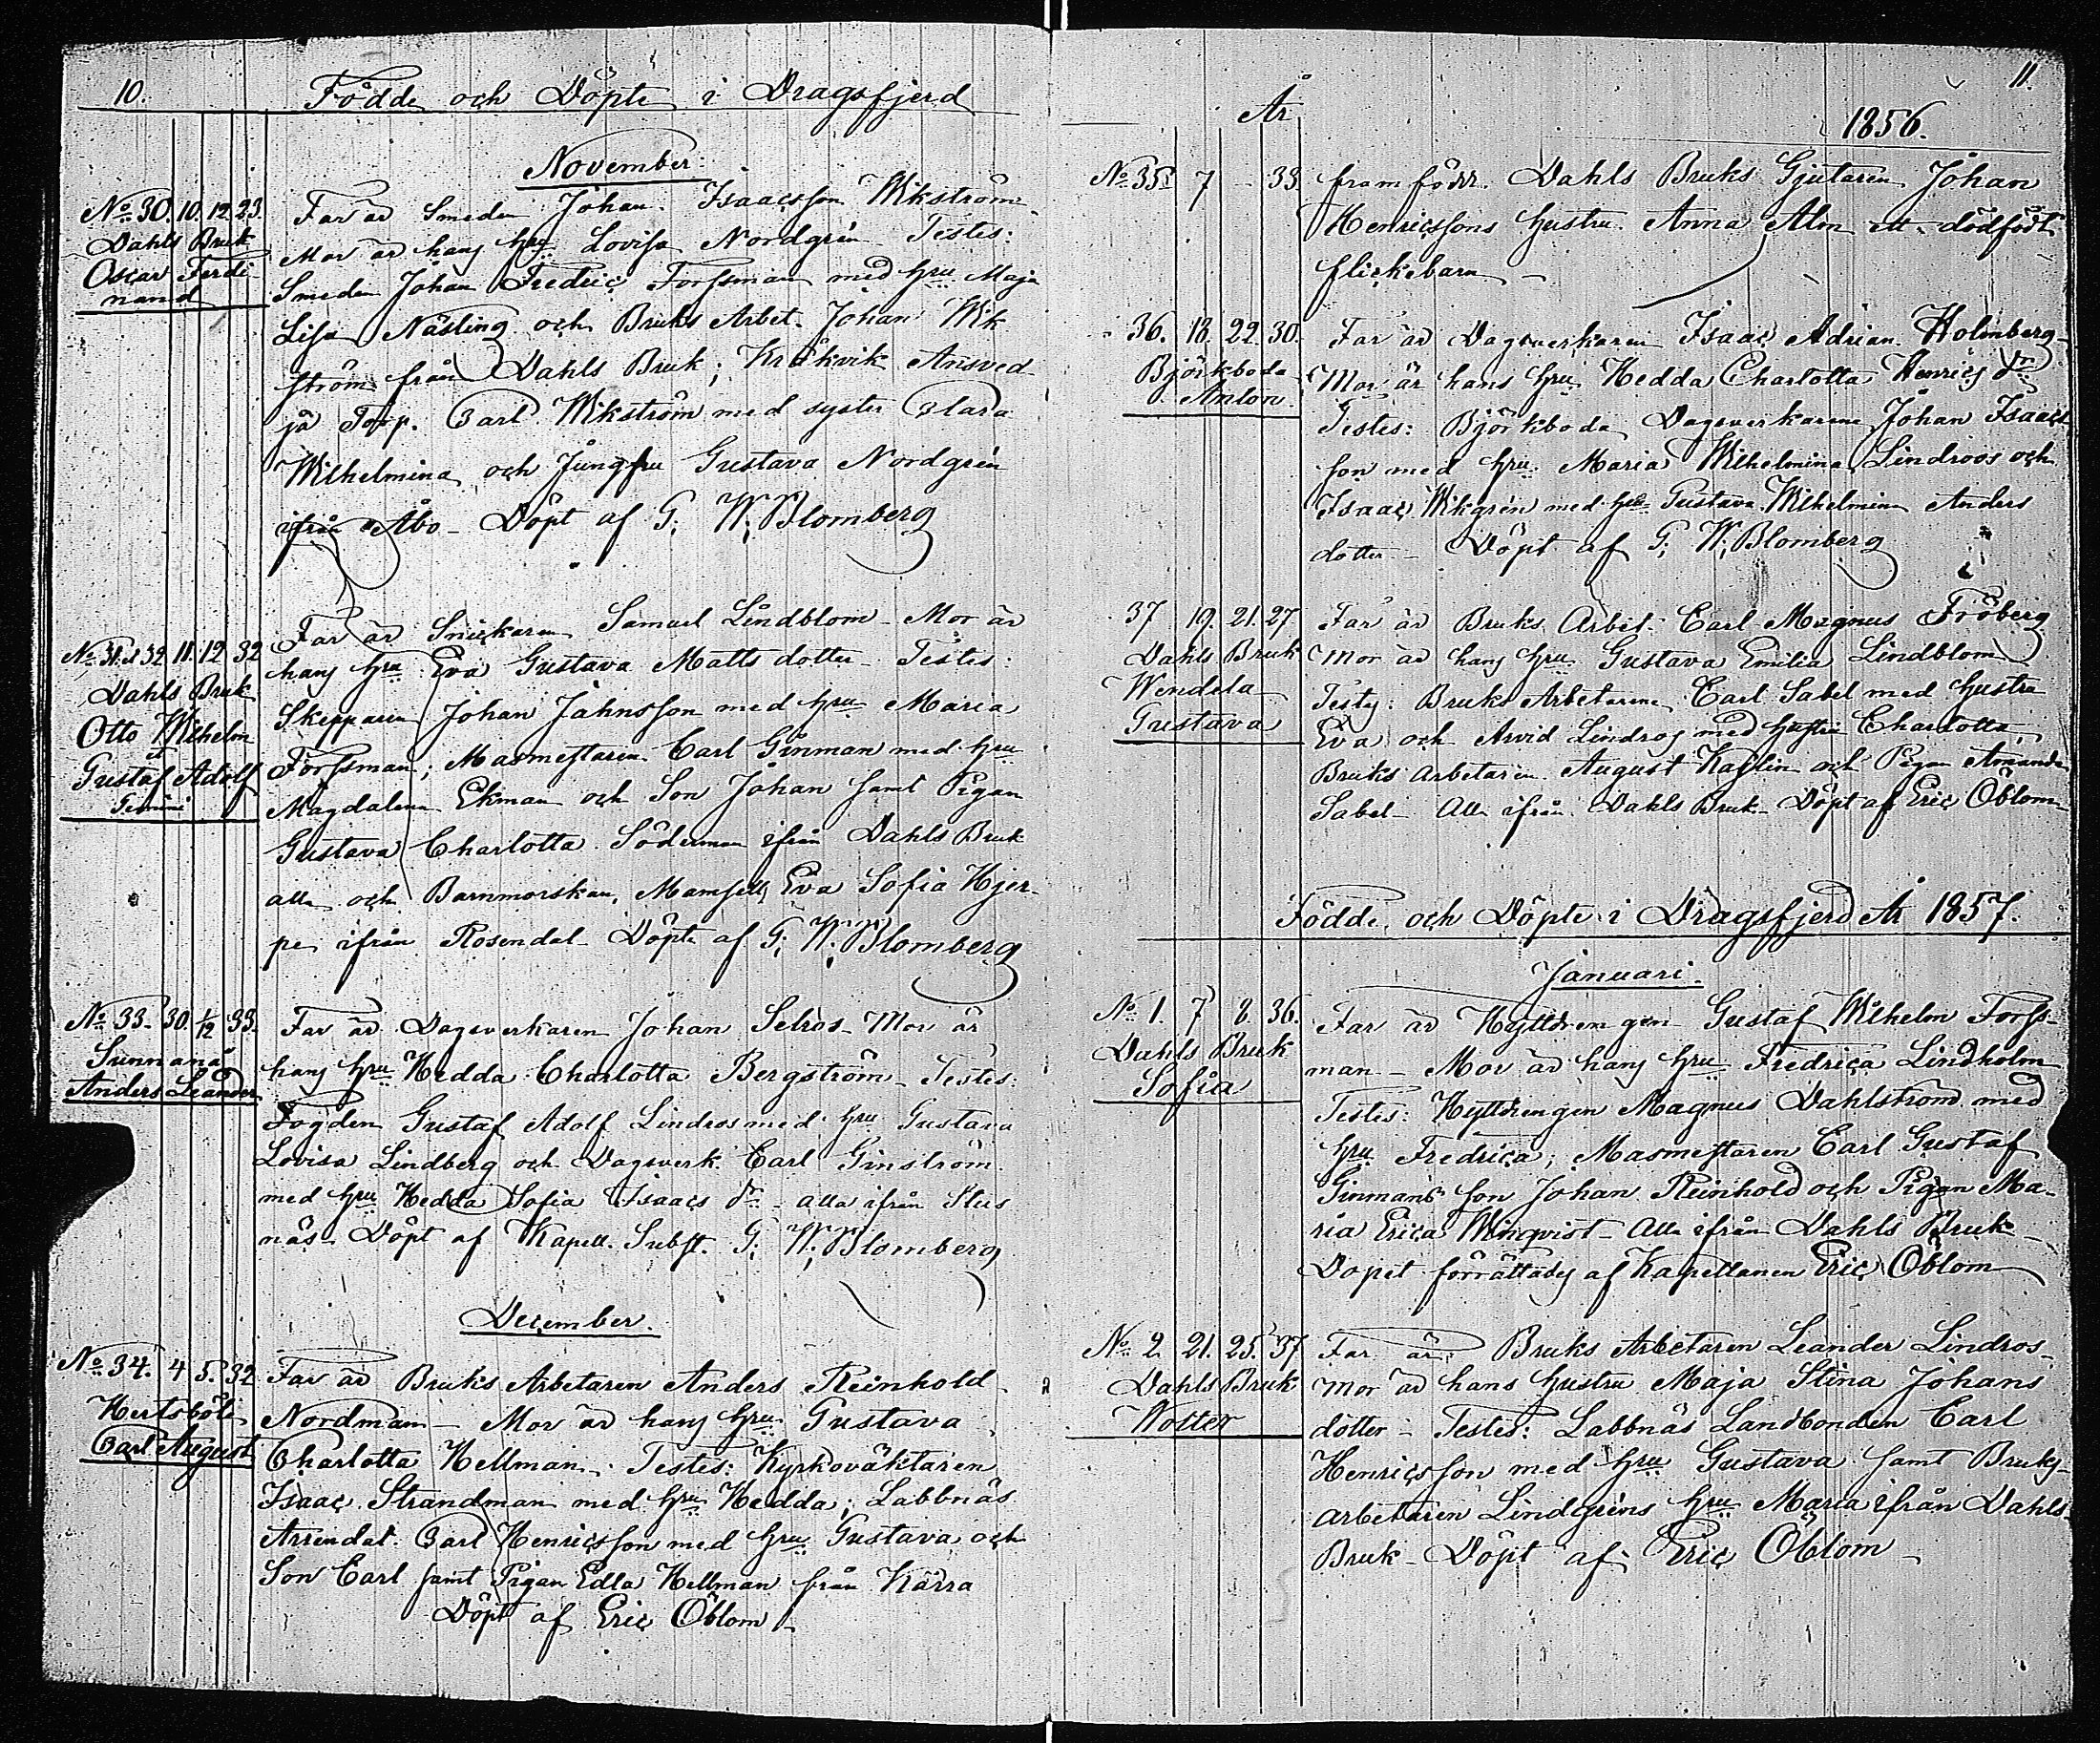 10.
Födde och Döpte i Dragsfjerd
November.
No 30. 10. 12. 23.
Dahls Bruk
Oscar Ferdi-
nand
Far är Smeden Johan Isaacsson Wikström
Mor är hans hru Lovisa Nordgrén Testes:
Smeden Johan Fredric Forssman med hru Maja
Lisa Näsling och Bruks Arbet. Johan Wik
ström från Dahls Bruk; Kråkvik Ansved
ja Torp. Carl Wikström med syster Clara
Wilhelmina och Jungfru Gustava Nordgrén
ifrån Åbo - Döpt af G. W. Blomberg
No 31. et 32. 11. 12. 32
Dahls Bruk
Otto Wilhelm
et
Gustaf Adolf
Gemini
Far är Snickaren Samuel Lindblom - Mor är
hans hru Eva Gustava Matts dotter - Testes:
Skepparen Johan Jahnsson med hru Maria
Forssman; Masmestaren Carl Ginman med hru
Magdalena Ekman och Son Johan samt Pigan
Gustava Charlotta Söderman ifrån Dahls Bruk
alla och Barnmorskan, Mamsell Eva Sofia Hjer-
pe ifrån Rosendal - Döpte af G. W. Blomberg
No 33. 30. 1/12 33.
Sunnanå
Anders Leander
Far är Dagsverkaren Johan Selros - Mor är
hans hru Hedda Charlotta Bergström - Testes:
Fogden Gustaf Adolf Lindros med hru Gustava
Lovisa Lindberg och Dagsverk. Carl Ginström
med hru Hedda Sofia Isaacs dr - alla ifrån Stus
näs - Döpt af Kapell. Subst. G. W. Blomberg
December.
No 34. 4 5. 32
Hertsböle
Carl August
Far är Bruks Arbetaren Anders Reinhold
Nordman - Mor är hans hru Gustava
Charlotta Hellman. Testes: Kyrkoväktaren
Isaac Strandman med hru Hedda; Labbnäs
Arrendat. Carl Henricsson med hru Gustava och
Son Carl samt Pigan Edla Hellman från Kärra
Döpt af Eric Öblom
11.
År
1856.
No 35. 7 - 33
framfödde Dahls Bruks Gjutaren Johan
Henricssons hustru Anna Alm ett dödfödt
flickebarn -
36. 18. 22. 30.
Björkboda
Anton
Far är Dagsverkaren Isaac Adrian Holmberg
Mor är hans hru Hedda Charlotta Henrics dr
Testes: Björkboda Dagsverkarene Johan Isaacs
son med hru Maria Wilhelmina Lindroos och
Isaac Wikgrén med hru Gustava Wilhelmina Anders
dotter - Döpt af G. W. Blomberg
37 19. 21. 27
Dahls Bruk
Wendela
Gustava
Far är Bruks Arbet. Carl Magnus Fröberg
Mor är hans hru Gustava Emilia Lindblom
Testes: Bruks Arbetarene Carl Sabel med hustru
Eva och Arvid Lindros med hustru Charlotta,
Bruks arbetaren August Kaslin och Pigan Amanda
Sabel - Alla ifrån Dahls Bruk - Döpt af Eric Öblom
Födde och Döpte i Dragsfjerd År 1857.
Januari.
No 1. 7 8. 36.
Dahls Bruk
Sofia
Far är Hyttdrengen Gustaf Wilhelm Forss-
man - Mor är hans hru Fredrica Lindholm
Testes: Hyttdrengen Magnus Dahlström med
hru Fredrica; Masmestaren Carl Gustaf
Ginmans son Johan Reinhold och Pigan Ma-
ria Erica Winqvist - Alla ifrån Dahls Bruk -
Dopet förrättades af Kapellanen Eric Öblom
No 2. 21. 25. 37
Dahls Bruk
Wolter
Far är Bruks Arbetaren Leander Lindros -
Mor är hans hustru Maja Stina Johans
dotter - Testes: Labbnäs Landbonden Carl
Henricsson med hru Gustava samt Bruks-
arbetaren Lindgréns hru Maria ifrån Dahls
Bruk - Döpt af Eric Öblom -